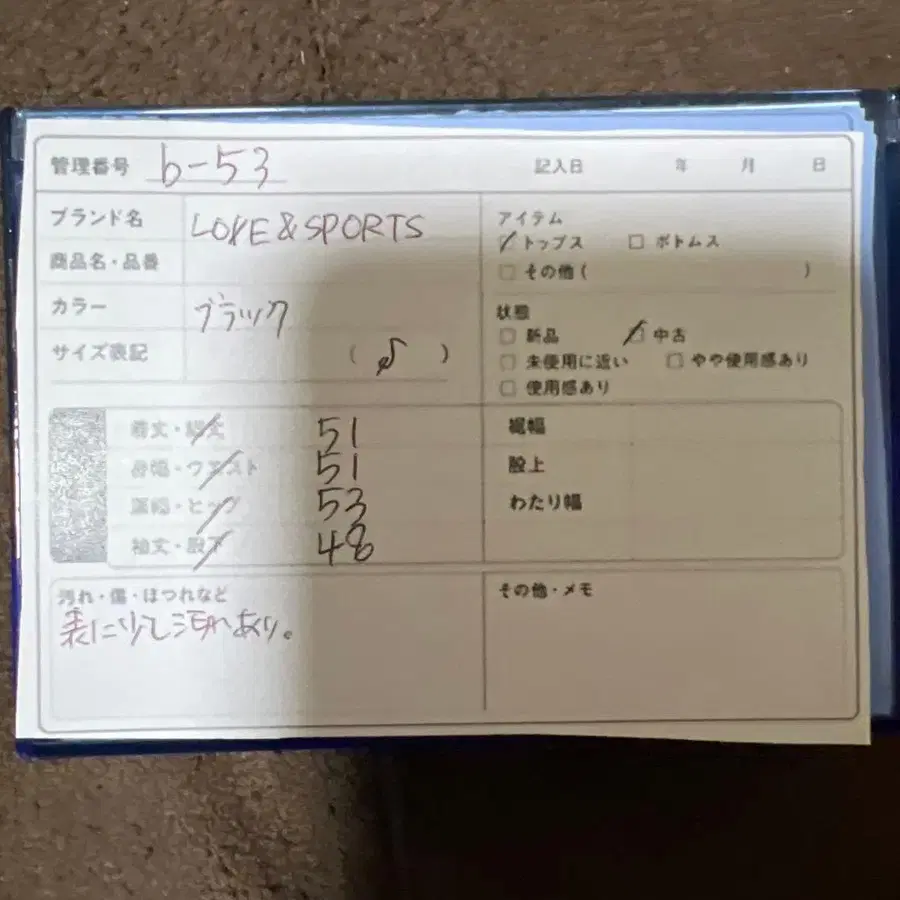 管理番号 b-53 記入日 年 月 日
ブランド名 LOVE&SPORTS
商品名・品番
カラー ブラック
サイズ表記 ( )
アイテム
トップス ボトムス
その他 ( )
状態
新品 中古
未使用に近い やや使用感あり
使用感あり
着丈・総丈 51
身幅・ウエスト 51
肩幅・ヒップ 53
袖丈・股下 48
裾幅
股上
わたり幅
汚れ・傷・ほつれなど
表に少し汚れあり。
その他・メモ